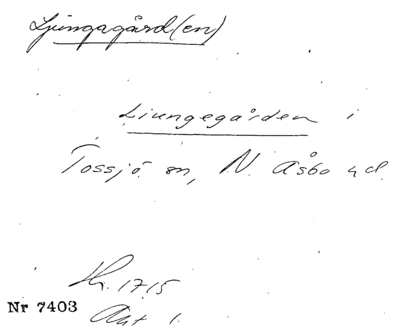 Ljungagård(en)
Liungegården i
Tossjö sn, N. Åsbo hd.
Hr. 1715
Nr 7403
Ant 1.